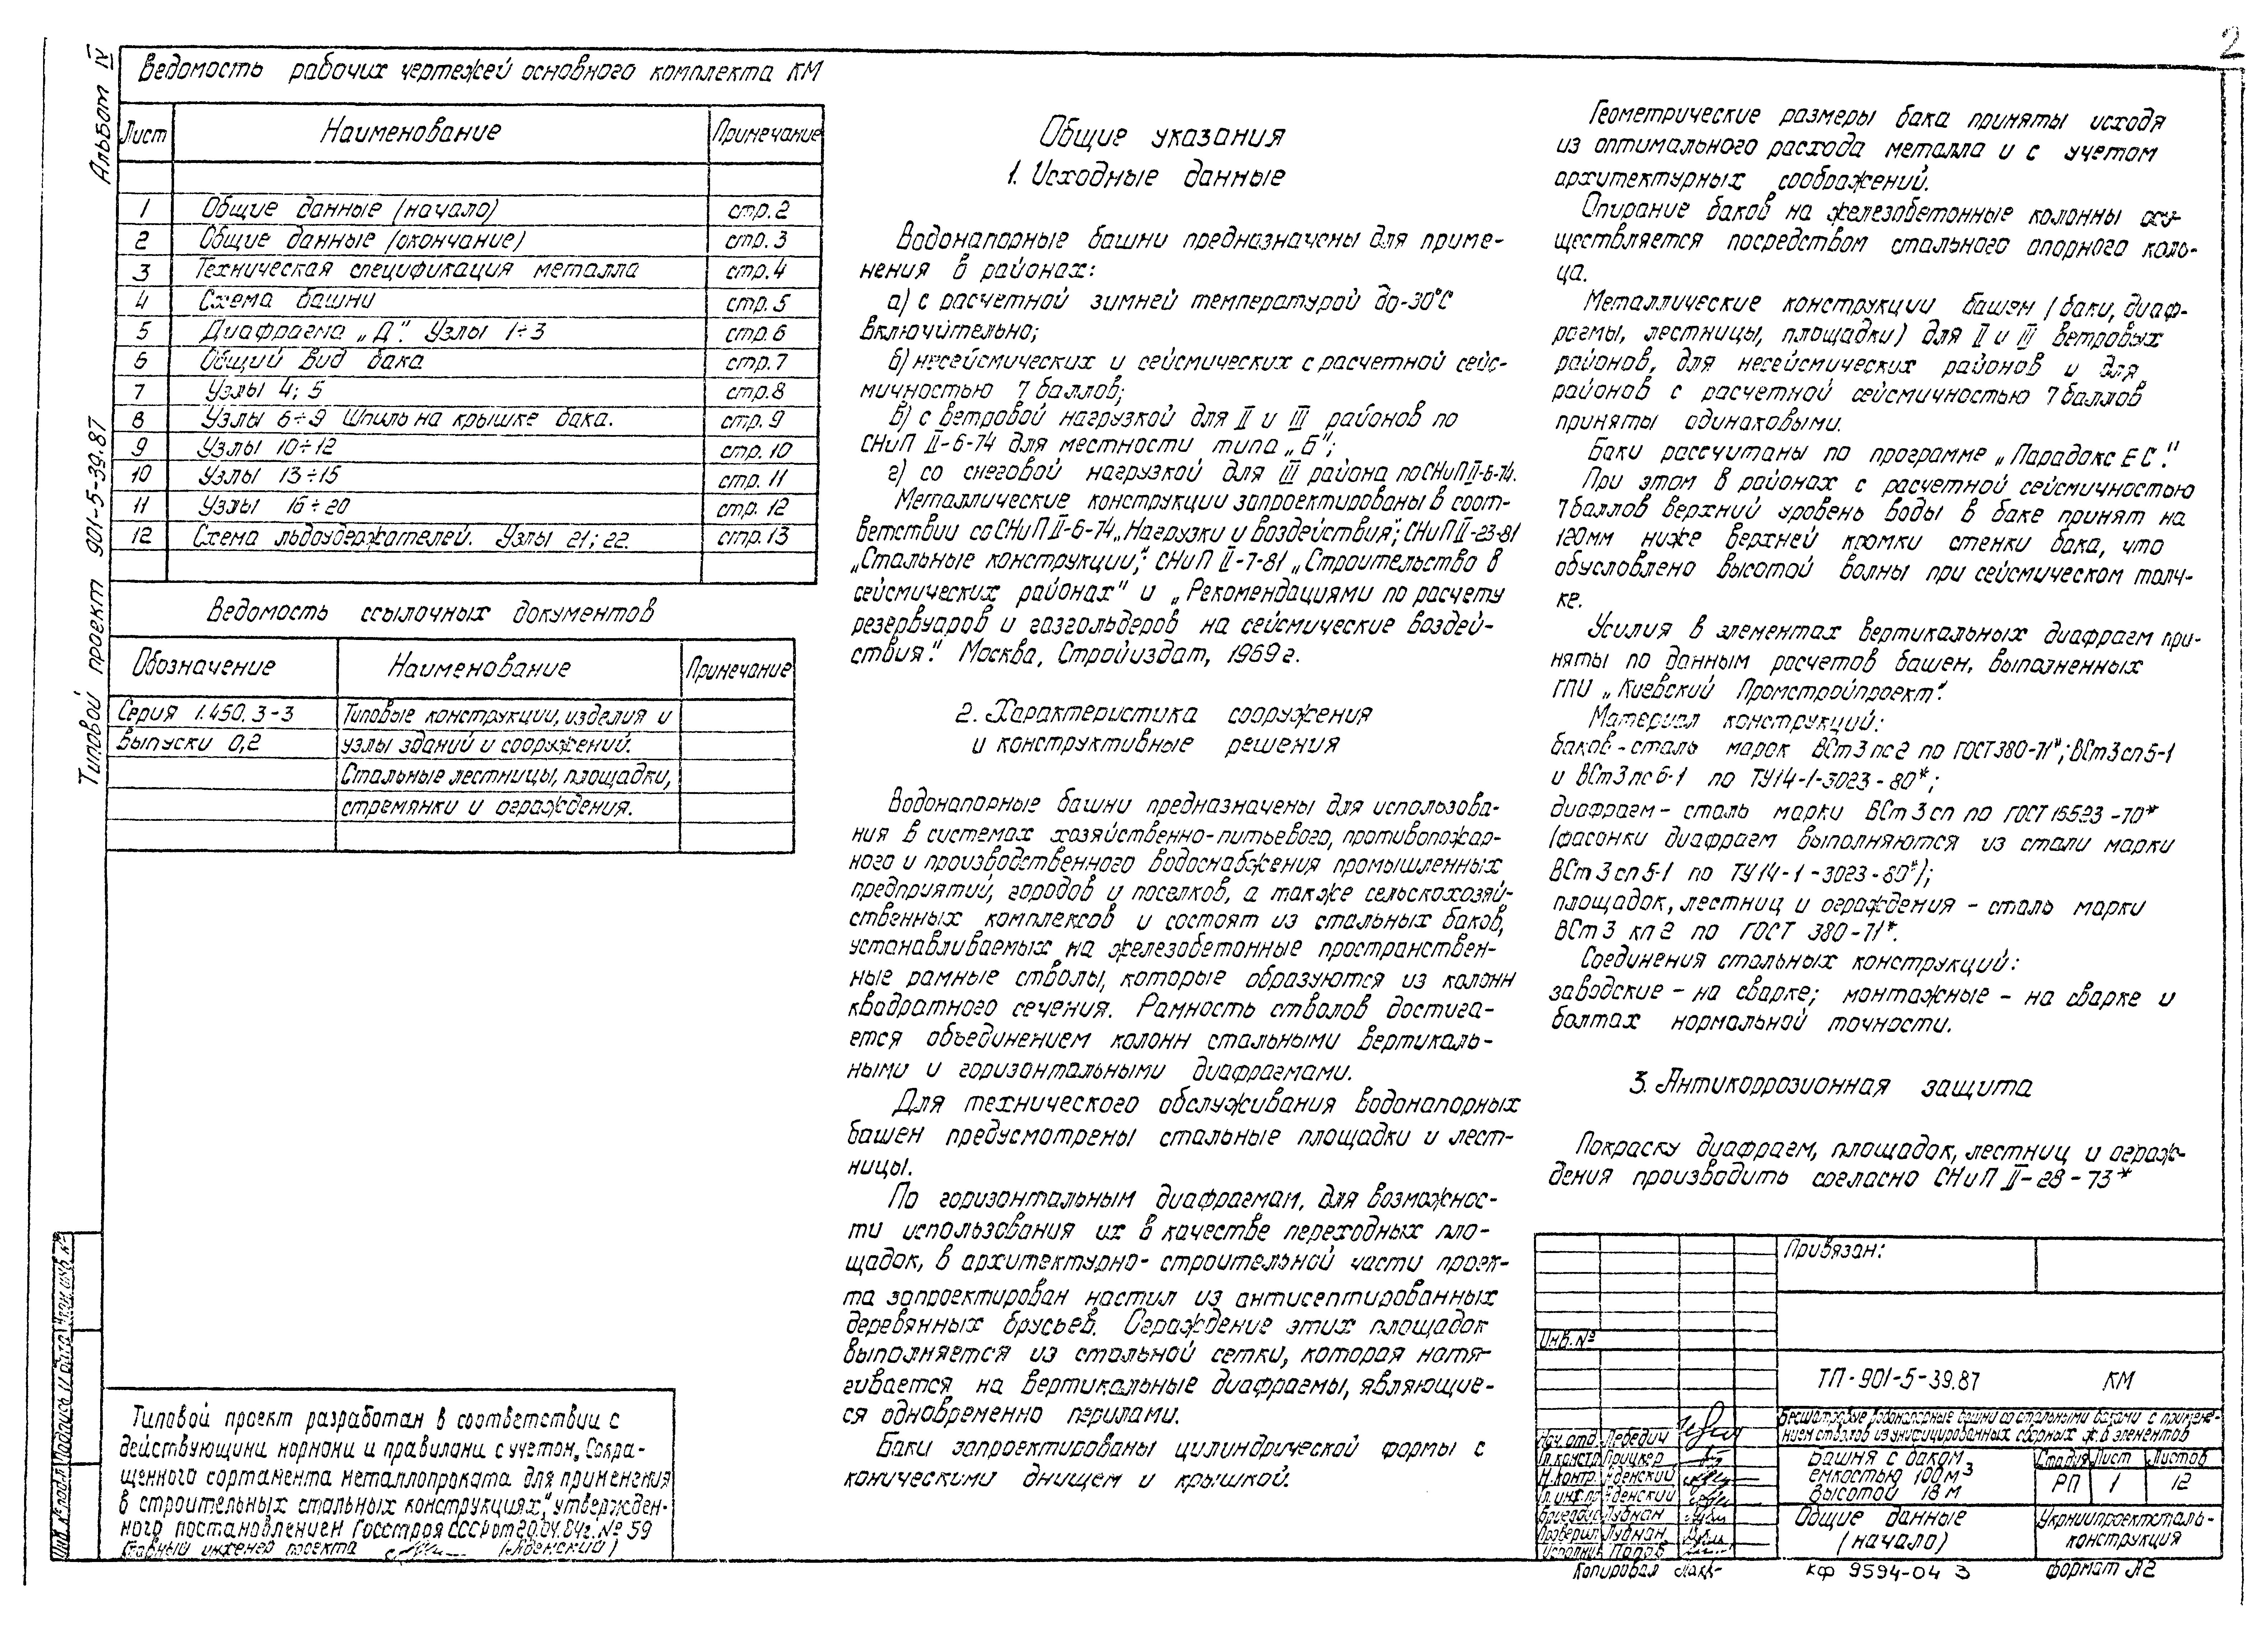 2
Альбом IV
Типовой проект 901-5-39.87
Ведомость рабочих чертежей основного комплекта КМ
Лист Наименование Примечание
1 Общие данные (начало) стр. 2
2 Общие данные (окончание) стр. 3
3 Техническая спецификация металла стр. 4
4 Схема башни стр. 5
5 Диафрагма „Д". Узлы 1÷3 стр. 6
6 Общий вид бака стр. 7
7 Узлы 4; 5 стр. 8
8 Узлы 6÷9 Шпиль на крышке бака. стр. 9
9 Узлы 10÷12 стр. 10
10 Узлы 13÷15 стр. 11
11 Узлы 16÷20 стр. 12
12 Схема льдоудержателей. Узлы 21; 22. стр. 13
Ведомость ссылочных документов
Обозначение Наименование Примечание
Серия 1.450.3-3 Типовые конструкции, изделия и
Выпуски 0,2 узлы зданий и сооружений.
Стальные лестницы, площадки,
стремянки и ограждения.
Типовой проект разработан в соответствии с
действующими нормами и правилами с учетом „Сокра-
щенного сортамента металлопроката для применения
в строительных стальных конструкциях", утвержден-
ного постановлением Госстроя СССР от 20.04.84г. № 59
Главный инженер проекта
Общие указания
1. Исходные данные
Водонапорные башни предназначены для приме-
нения в районах:
а) с расчетной зимней температурой до -30°С
включительно;
б) несейсмических и сейсмических с расчетной сейс-
мичностью 7 баллов;
в) с ветровой нагрузкой для II и III районов по
СНиП II-6-74 для местности типа „Б";
г) со снеговой нагрузкой для III района по СНиП II-6-74.
Металлические конструкции запроектированы в соот-
ветствии со СНиП II-6-74 „Нагрузки и воздействия"; СНиП II-23-81
„Стальные конструкции"; СНиП II-7-81 „Строительство в
сейсмических районах" и „Рекомендациями по расчету
резервуаров и газгольдеров на сейсмические воздей-
ствия". Москва, Стройиздат, 1969 г.
2. Характеристика сооружения
и конструктивные решения
Водонапорные башни предназначены для использова-
ния в системах хозяйственно-питьевого, противопожар-
ного и производственного водоснабжения промышленных
предприятий, городов и поселков, а также сельскохозяй-
ственных комплексов и состоят из стальных баков,
устанавливаемых на железобетонные пространствен-
ные рамные стволы, которые образуются из колонн
квадратного сечения. Рамность стволов достига-
ется объединением колонн стальными вертикаль-
ными и горизонтальными диафрагмами.
Для технического обслуживания водонапорных
башен предусмотрены стальные площадки и лест-
ницы.
По горизонтальным диафрагмам, для возможнос-
ти использования их в качестве переходных пло-
щадок, в архитектурно-строительной части проек-
та запроектирован настил из антисептированных
деревянных брусьев. Ограждение этих площадок
выполняется из стальной сетки, которая натя-
гивается на вертикальные диафрагмы, являющие-
ся одновременно перилами.
Баки запроектированы цилиндрической формы с
коническими днищем и крышкой.
Геометрические размеры бака приняты исходя
из оптимального расхода металла и с учетом
архитектурных соображений.
Опирание баков на железобетонные колонны осу-
ществляется посредством стального опорного коль-
ца.
Металлические конструкции башен (баки, диаф-
рагмы, лестницы, площадки) для II и III ветровых
районов, для несейсмических районов и для
районов с расчетной сейсмичностью 7 баллов
приняты одинаковыми.
Баки рассчитаны по программе „Парадокс ЕС".
При этом в районах с расчетной сейсмичностью
7 баллов верхний уровень воды в баке принят на
120мм ниже верхней кромки стенки бака, что
обусловлено высотой волны при сейсмическом толч-
ке.
Усилия в элементах вертикальных диафрагм при-
няты по данным расчетов башен, выполненных
ГПИ „Киевский Промстройпроект".
Материал конструкций:
баков - сталь марок ВСт3пс2 по ГОСТ 380-71*; ВСт3сп5-1
и ВСт3пс6-1 по ТУ14-1-3023-80*;
диафрагм - сталь марки ВСт3сп по ГОСТ 16523-70*
(фасонки диафрагм выполняются из стали марки
ВСт3сп5-1 по ТУ14-1-3023-80*);
площадок, лестниц и ограждения - сталь марки
ВСт3кп2 по ГОСТ 380-71*.
Соединения стальных конструкций:
заводские - на сварке; монтажные - на сварке и
болтах нормальной точности.
3. Антикоррозионная защита
Покраску диафрагм, площадок, лестниц и ограж-
дения производить согласно СНиП II-28-73*
Привязан:
Инв. №
ТП-901-5-39.87 КМ
Бесшатровые водонапорные башни со стальными баками с примене-
нием стволов из унифицированных сборных ж.б элементов
Башня с баком
емкостью 100 м3
высотой 18 м
Стадия Лист Листов
РП 1 12
Общие данные
(начало)
Укрниипроектсталь-
конструкция
Нач. отд. Лебедич
Гл. констр. Прицкер
Н. контр.
Гл. инж. пр.
Лубнан
Проверил Лубнан
Исполнил Попов
Копировал
КФ 9594-04 3
Формат А2